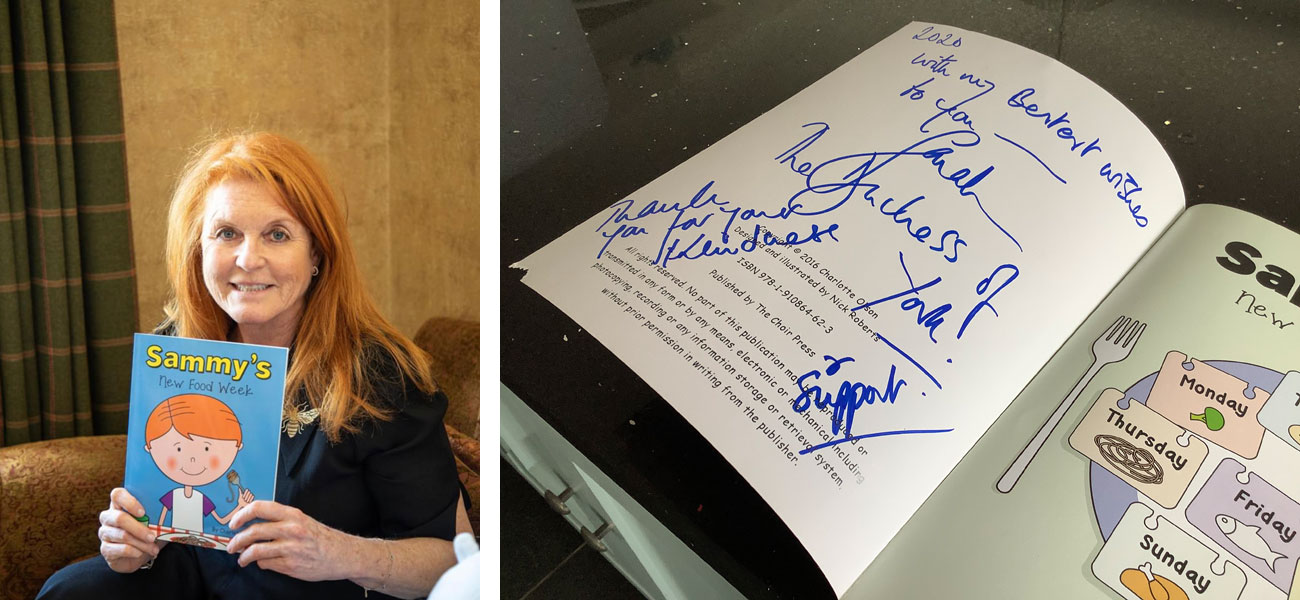 Sammy's
New Food Week
2020
with my Bestest wishes
to you
Sarah
The Duchess of
York!
Thank
you for your
Kindness
& Support.
Copyright © 2016 Charlotte Olson
Designed and illustrated by Nick Roberts
ISBN 978-1-910864-62-3
Published by The Choir Press
All rights reserved. No part of this publication may be reproduced or
transmitted in any form or by any means, electronic or mechanical including
photocopying, recording or any information storage or retrieval system,
without prior permission in writing from the publisher.
Sa
New
Monday
T
Thursday
Friday
Sunday